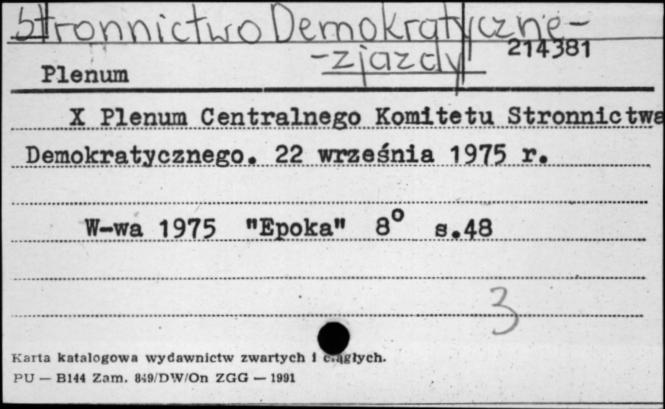 Stronnictwo Demokratyczne-
-zjazdy 214381
Plenum
X Plenum Centralnego Komitetu Stronnictwa
Demokratycznego. 22 września 1975 r.
W-wa 1975 "Epoka" 8° s.48
3
Karta katalogowa wydawnictw zwartych i ciągłych.
PU — B144 Zam. 849/DW/On ZGG — 1991